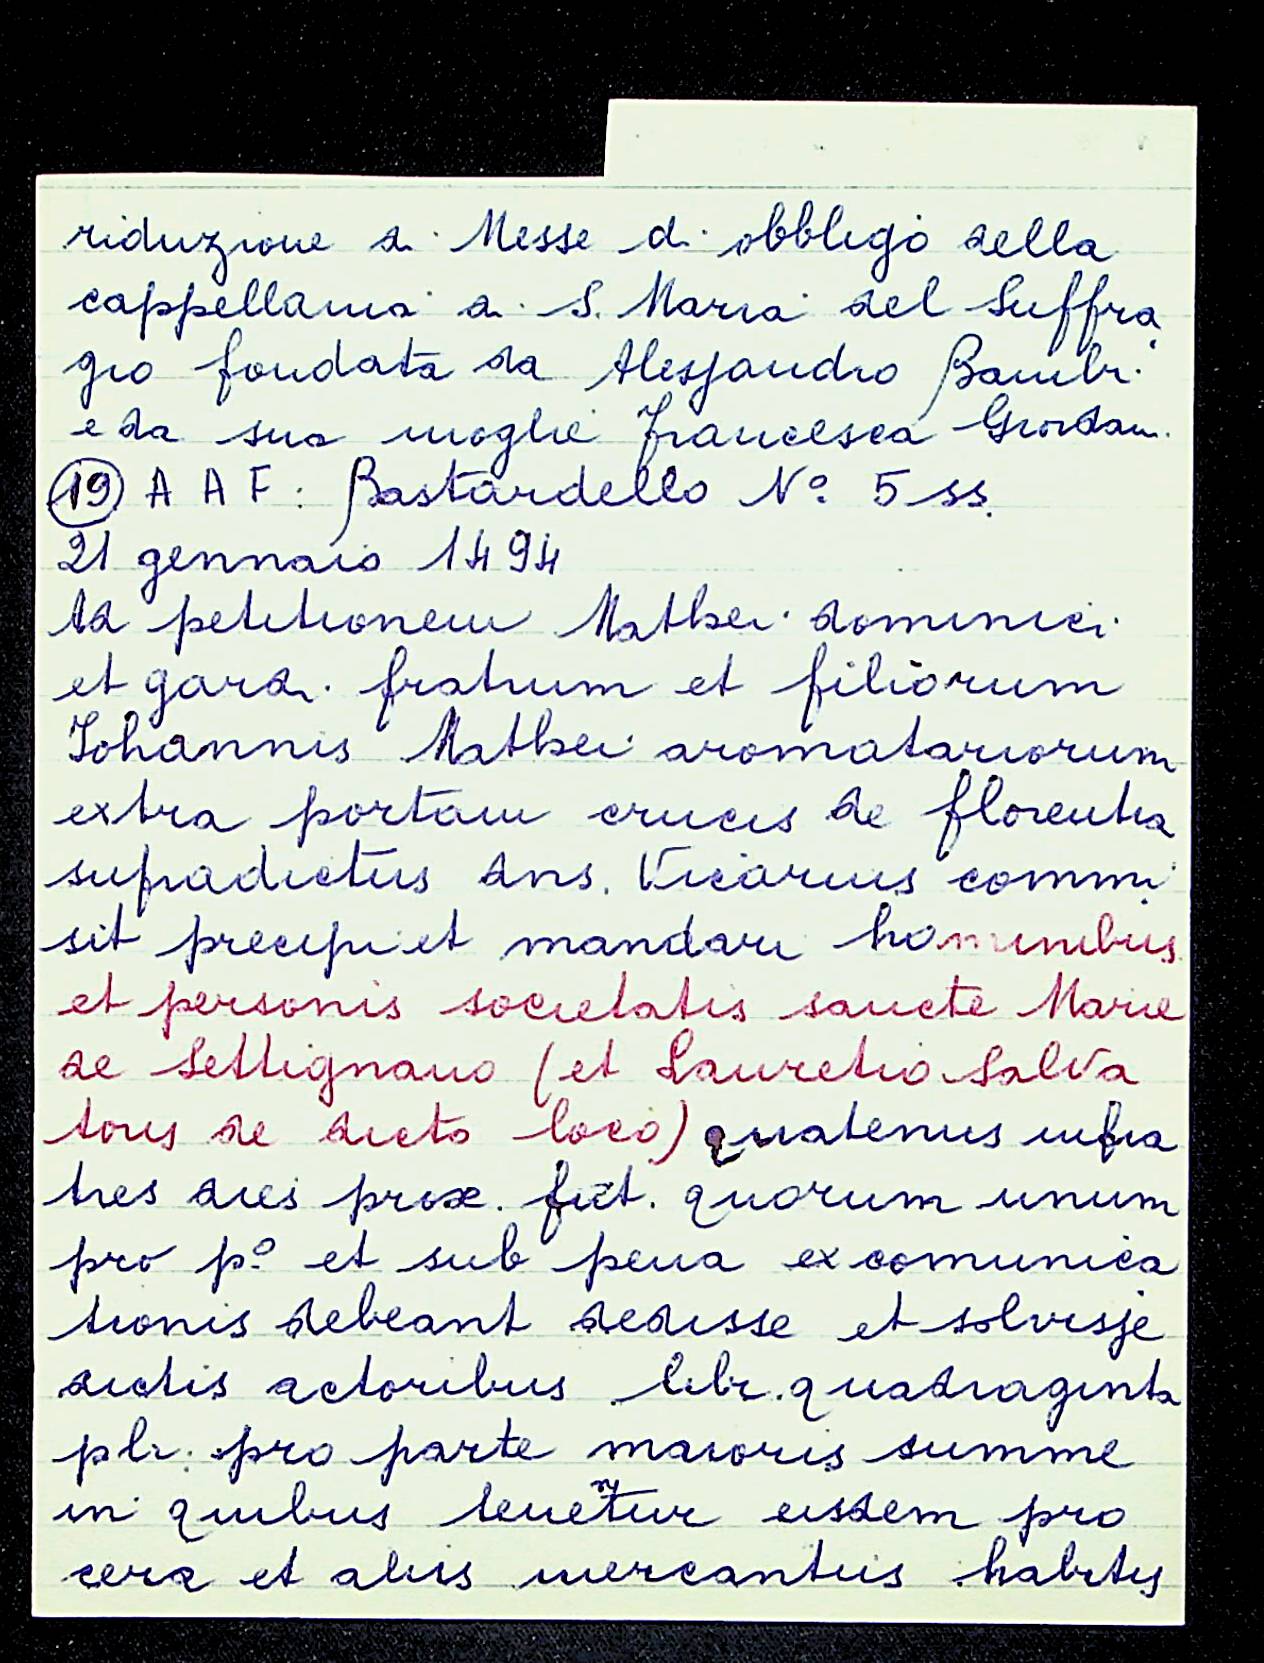 riduzione di Messe di obbligo della
cappellania di S. Maria del Suffra
gio fondata da Alessandro Bambi
e da sua moglie Francesca Giordani
19 A A F: Bastardello N° 5 ss.
21 gennaio 1494
Ad petitionem Mathei dominici
et gardi fratrum et filiorum
Iohannis Mathei aromatariorum
extra portam crucis de florentia
supradictus dns. Vicarius commi
sit precipi et mandari hominibus
et personis societatis sancte Marie
de Settignano (et Lauretio Salva
toris de dicto loco) quatenus infra
tres dies prox. fut. quorum unum
pro p° et sub pena excomunica
tionis debeant dedisse et solvisse
dictis actoribus libr. quadraginta
pli. pro parte maioris summe
in quibus tenentur eisdem pro
cera et aliis mercantiis habitis